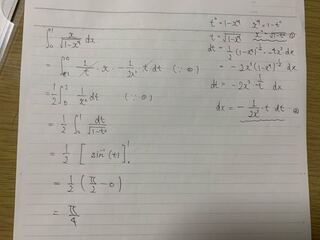 ∫₀¹ x/√(1-x⁴) dx
= ∫₁⁰ 1/t · x · -1/2x³ · t dt (∵ ②)
= 1/2 ∫₀¹ 1/x² dt (∵ ①)
= 1/2 ∫₀¹ dt/√(1-t²)
= 1/2 [ sin⁻¹(t) ]₀¹
= 1/2 ( π/2 - 0 )
= π/4
t² = 1-x⁴ x⁴ = 1-t²
t = √(1-x⁴) x² = √(1-t²) ①
dt = 1/2 (1-x⁴)^(-1/2) · -4x³ dx
= -2x³ (1-x⁴)^(-1/2) dx
dt = -2x³ · 1/t dx
dx = - 1/2x³ · t dt ②